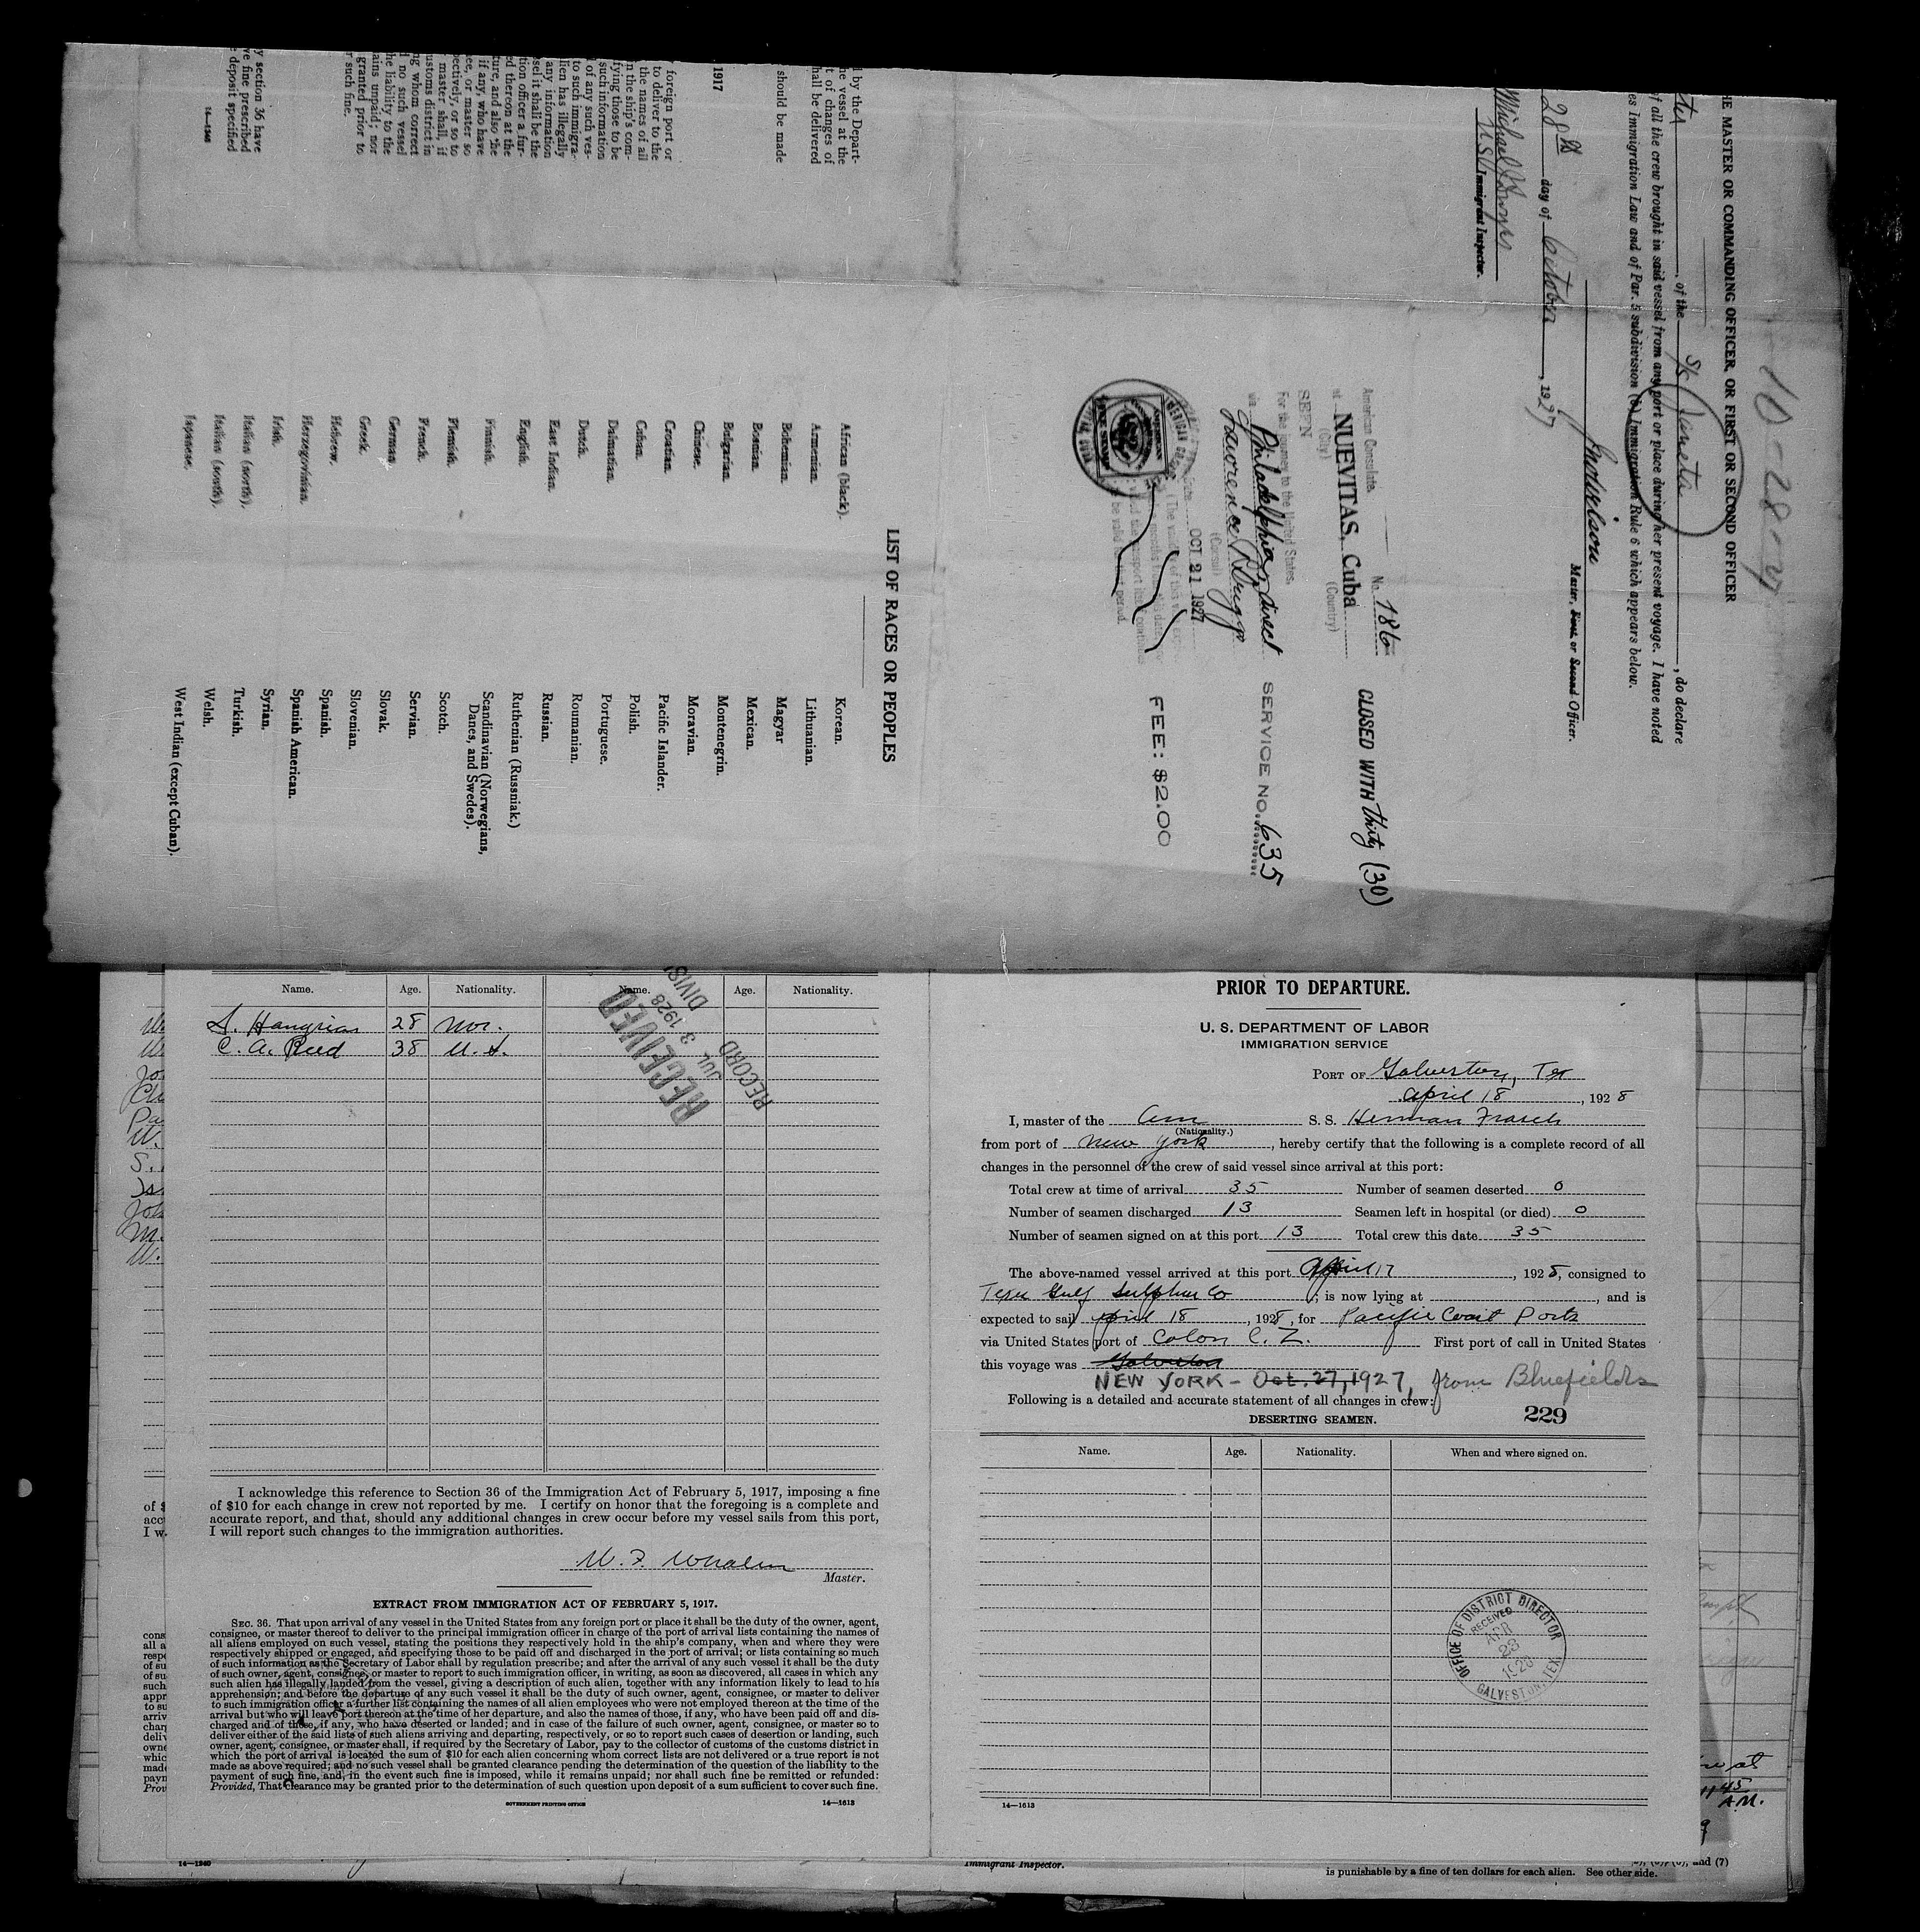 THE MASTER OR COMMANDING OFFICER, OR FIRST OR SECOND OFFICER
of the S/S Juneta, do declare
of all the crew brought in said vessel from any port or place during her present voyage. I have noted
es Immigration Law and of Par. 5 subdivision (b) Immigration Rule 6 which appears below.
Master, First or Second Officer.
28th day of October, 1927
U.S. Immigrant Inspector.
American Consulate.
No. 186
CLOSED WITH thirty (30)
at NUEVITAS, Cuba
(City)
(Country)
SEEN
For the journey to the United States.
via Philadelphia direct
SERVICE NO. 635
(Consul)
OCT 21 1927
FEE: $2.00
l by the Depart-
he vessel at the
t of changes of
hall be delivered
should be made
1917
foreign port or
to deliver to the
the names of all
n the ship's com-
fying those to be
such information
of any such ves-
to such immigra-
lien has illegally
any information
sel it shall be the
tion officer a fur-
d thereon at the
ure, and also the
if any, who have
ee, or master so
pectively, or so to
master shall, if
ustoms district in
ng whom correct
d no such vessel
he liability to the
ains unpaid; nor
granted prior to
r such fine.
y section 36 have
ve fine prescribed
e deposit specified
14—1240
LIST OF RACES OR PEOPLES
African (black).
Armenian.
Bohemian.
Bosnian.
Bulgarian.
Chinese.
Croatian.
Cuban.
Dalmatian.
Dutch.
East Indian.
English.
Finnish.
Flemish.
French.
German.
Greek.
Hebrew.
Herzegovinian.
Irish.
Italian (north).
Italian (south).
Japanese.
Korean.
Lithuanian.
Magyar
Mexican.
Montenegrin.
Moravian.
Pacific Islander.
Polish.
Portuguese.
Roumanian.
Russian.
Ruthenian (Russniak.)
Scandinavian (Norwegians,
Danes, and Swedes).
Scotch.
Servian.
Slovak.
Slovenian.
Spanish.
Spanish American.
Syrian.
Turkish.
Welsh.
West Indian (except Cuban).
Name. Age. Nationality. Name. Age. Nationality.
S. Hangrias 28 Nor.
C. A. Reed 38 U. S.
RECEIVED
JUL 3 1928
RECORD DIVIS
I acknowledge this reference to Section 36 of the Immigration Act of February 5, 1917, imposing a fine
of $10 for each change in crew not reported by me. I certify on honor that the foregoing is a complete and
accurate report, and that, should any additional changes in crew occur before my vessel sails from this port,
I will report such changes to the immigration authorities.
W. F. Whalen
Master.
EXTRACT FROM IMMIGRATION ACT OF FEBRUARY 5, 1917.
SEC. 36. That upon arrival of any vessel in the United States from any foreign port or place it shall be the duty of the owner, agent,
consignee, or master thereof to deliver to the principal immigration officer in charge of the port of arrival lists containing the names of
all aliens employed on such vessel, stating the positions they respectively hold in the ship's company, when and where they were
respectively shipped or engaged, and specifying those to be paid off and discharged in the port of arrival; or lists containing so much
of such information as the Secretary of Labor shall by regulation prescribe; and after the arrival of any such vessel it shall be the duty
of such owner, agent, consignee, or master to report to such immigration officer, in writing, as soon as discovered, all cases in which any
such alien has illegally landed from the vessel, giving a description of such alien, together with any information likely to lead to his
apprehension; and before the departure of any such vessel it shall be the duty of such owner, agent, consignee, or master to deliver
to such immigration officer a further list containing the names of all alien employees who were not employed thereon at the time of the
arrival but who will leave port thereon at the time of her departure, and also the names of those, if any, who have been paid off and dis-
charged and of those, if any, who have deserted or landed; and in case of the failure of such owner, agent, consignee, or master so to
deliver either of the said lists of such aliens arriving and departing, respectively, or so to report such cases of desertion or landing, such
owner, agent, consignee, or master shall, if required by the Secretary of Labor, pay to the collector of customs of the customs district in
which the port of arrival is located the sum of $10 for each alien concerning whom correct lists are not delivered or a true report is not
made as above required; and no such vessel shall be granted clearance pending the determination of the question of the liability to the
payment of such fine, and, in the event such fine is imposed, while it remains unpaid; nor shall such fine be remitted or refunded:
Provided, That clearance may be granted prior to the determination of such question upon deposit of a sum sufficient to cover such fine.
GOVERNMENT PRINTING OFFICE
14—1613
14—1240
PRIOR TO DEPARTURE.
U. S. DEPARTMENT OF LABOR
IMMIGRATION SERVICE
PORT OF Galveston, Tex
April 18, 1928
I, master of the Am S. S. Herman Frasch
(Nationality.)
from port of New York, hereby certify that the following is a complete record of all
changes in the personnel of the crew of said vessel since arrival at this port:
Total crew at time of arrival 35 Number of seamen deserted 0
Number of seamen discharged 13 Seamen left in hospital (or died) 0
Number of seamen signed on at this port 13 Total crew this date 35
The above-named vessel arrived at this port April 17, 1928, consigned to
Texas Gulf Sulphur Co; is now lying at , and is
expected to sail April 18, 1928, for Pacific Coast Ports
via United States port of Colon C. Z. First port of call in United States
this voyage was Galveston
NEW YORK - Oct. 27, 1927, from Bluefields
Following is a detailed and accurate statement of all changes in crew:
229
DESERTING SEAMEN.
Name. Age. Nationality. When and where signed on.
OFFICE OF DISTRICT DIRECTOR
RECEIVED
APR 23 1928
GALVESTON, TEX.
14—1613
Immigrant Inspector.
and (7)
is punishable by a fine of ten dollars for each alien. See other side.